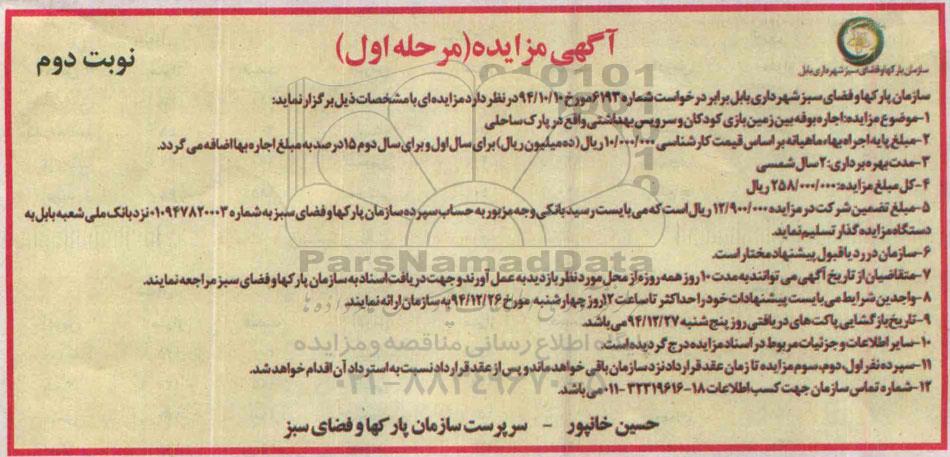 آگهی مزایده(مرحله اول)
نوبت دوم
سازمان پارکها و فضای سبز شهرداری بابل
سازمان پارکها و فضای سبز شهرداری بابل برابر درخواست شماره ۶۱۹۳مورخ ۹۴/۱۰/۱۰ در نظر دارد مزایده ای با مشخصات ذیل برگزار نماید:
۱-موضوع مزایده:اجاره بوفه بین زمین بازی کودکان و سرویس بهداشتی واقع در پارک ساحلی
۲-مبلغ پایه اجراه بهاء ماهیانه بر اساس قیمت کارشناسی ۱۰/۰۰۰/۰۰۰ ریال (ده میلیون ریال) برای سال اول و برای سال دوم ۱۵درصد به مبلغ اجاره بها اضافه می گردد.
۳-مدت بهره برداری: ۲سال شمسی
۴-کل مبلغ مزایده: ۲۵۸/۰۰۰/۰۰۰ ریال
۵-مبلغ تضمین شرکت در مزایده ۱۲/۹۰۰/۰۰۰ ریال است که می بایست رسید بانکی وجه مزبور به حساب سپرده سازمان پارکها و فضای سبز به شماره ۰۱۰۹۴۷۸۲۰۰۰۳ نزد بانک ملی شعبه بابل به
دستگاه مزایده گذار تسلیم نماید.
۶-سازمان در رد یا قبول پیشنهاد مختار است.
۷-متقاضیان از تاریخ آگهی می توانند به مدت ۱۰روز همه روزه از محل مورد نظر بازدید به عمل آورند و جهت دریافت اسناد به سازمان پارکها و فضای سبز مراجعه نمایند.
۸-واجدین شرایط می بایست پیشنهادات خود را حداکثر تا ساعت ۱۲روز چهارشنبه مورخ ۹۴/۱۲/۲۶ به سازمان ارائه نمایند.
۹-تاریخ بازگشایی پاکت های دریافتی روز پنج شنبه ۹۴/۱۲/۲۷ می باشد.
۱۰-سایر اطلاعات و جزئیات مربوط در اسناد مزایده درج گردیده است.
۱۱-سپرده نفر اول، دوم، سوم مزایده تا زمان عقد قرارداد نزد سازمان باقی خواهد ماند و پس از عقد قرارداد نسبت به استرداد آن اقدام خواهد شد.
۱۲-شماره تماس سازمان جهت کسب اطلاعات ۱۸-۳۲۳۱۹۶۱۶-۰۱۱ می باشد.
حسین خانپور - سرپرست سازمان پارکها و فضای سبز
ParsNamadData
پایگاه اطلاع رسانی مناقصه و مزایده
۰۲۱-۸۸۳۴۹۶۷۰-۵